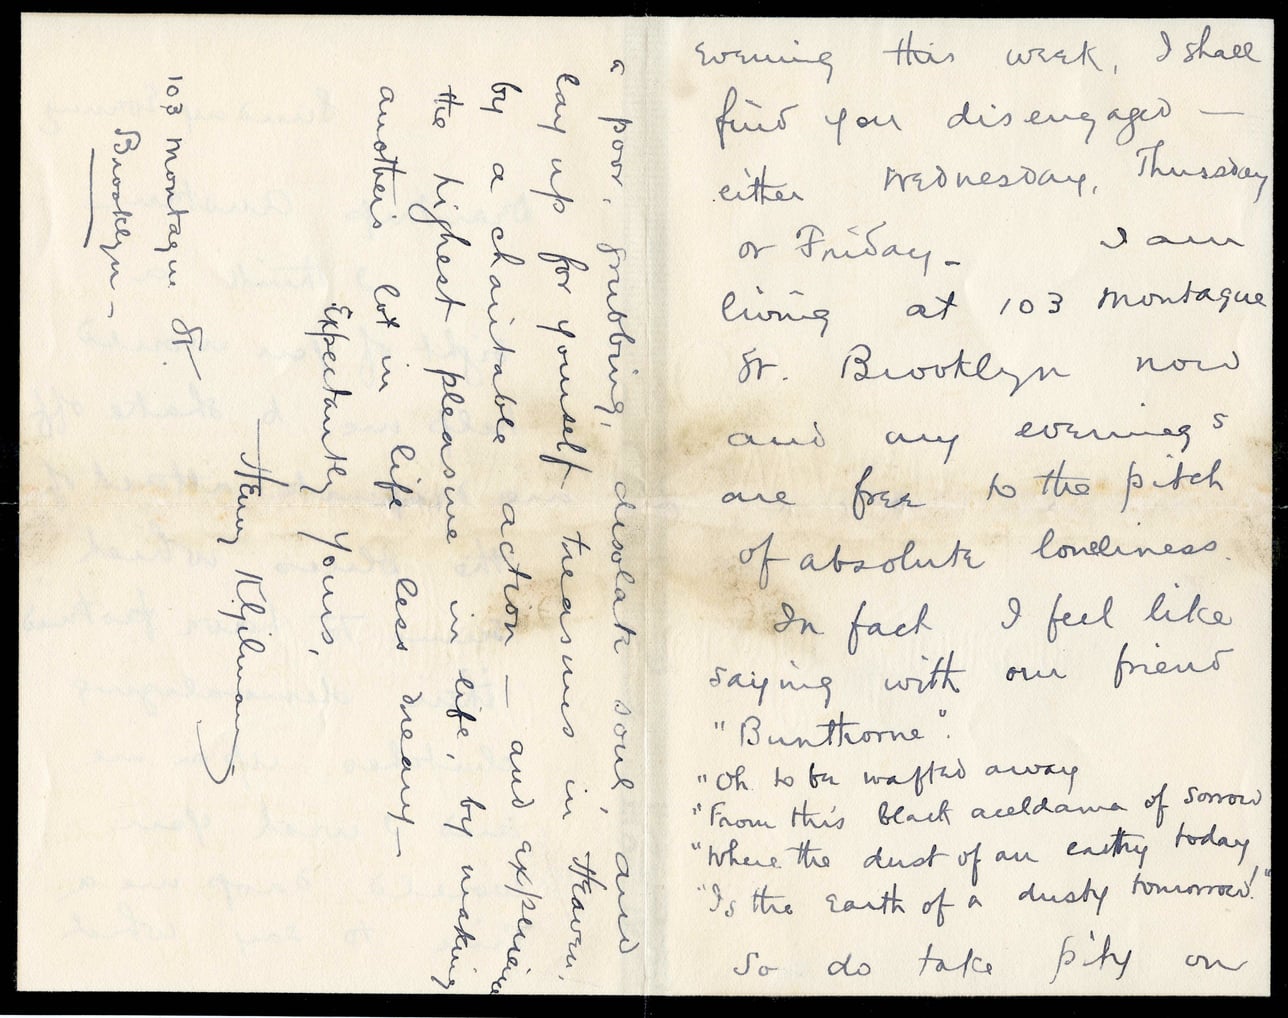 evening this week, I shall
find you disengaged —
either Wednesday, Thursday
or Friday — I am
living at 103 Montague
St. Brooklyn now
and my evenings
are free to the pitch
of absolute loneliness.
In fact I feel like
saying with our friend
"Bunthorne".
"Oh to be wafted away
"From this black aceldama of sorrow
"Where the dust of an earthy today
"Is the Earth of a dusty tomorrow!"
So do take pity on
a poor, grubbing, desolate soul, and
lay up for yourself treasures in Heaven,
by a charitable action — and experience
the highest pleasure in life, by making
another's lot in life less dreary —
Expectantly yours,
— Henry K. Gilman
103 Montague St.
Brooklyn —